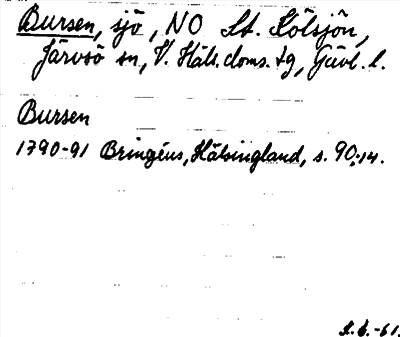 Bursen, sjö, NO St. Kölsjön,
Järvsö sn, V. Häls. doms. tg, Gävl. l.
Bursen
1790-91 Bringéus, Hälsingland, s. 90:14.
S.b. -61.